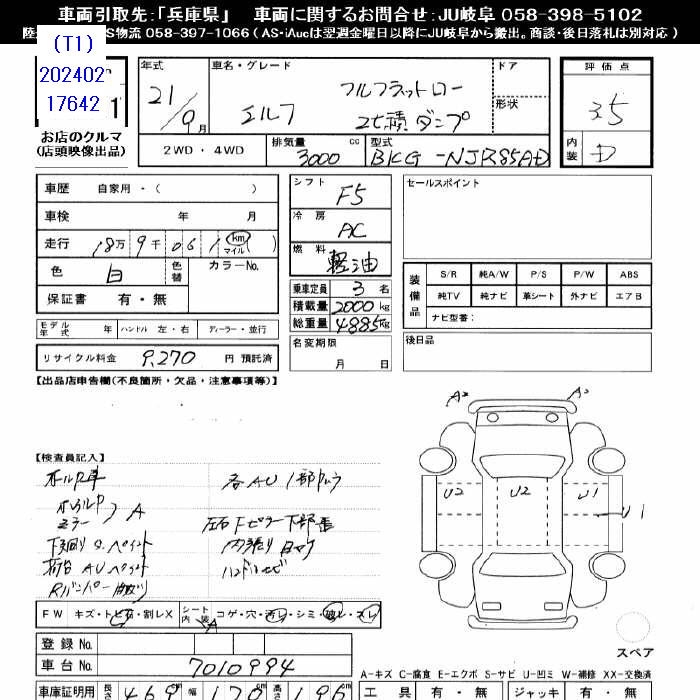 車両引取先:「兵庫県」 車両に関するお問合せ:JU岐阜 058-398-5102
S物流 058-397-1066 ( AS・iAucは翌週金曜日以降にJU岐阜から搬出。商談・後日落札は別対応 )
(T1)
202402
17642
1
お店のクルマ
(店頭映像出品)
年式 車名・グレード ドア 形状
21/9月 エルフ フルフラットロー
2t積ダンプ
2WD・4WD 排気量 3000 cc 型式 BKG-NJR85AD
評価点 3.5
内装 D
車歴 自家用・( )
車検 年 月
走行 18万9千061 km マイル ( )
色 白 色替 カラーNo.
保証書 有・無
モデル年式 年 ハンドル 左・右 ディーラー・並行
リサイクル料金 9,270 円 預託済
シフト F5
冷房 AC
燃料 軽油
乗車定員 3 名
積載量 2000 kg
総重量 4885 kg
名変期限
月 日
セールスポイント
装備品
S/R 純A/W P/S P/W ABS
純TV 純ナビ 革シート 外ナビ エアB
ナビ型番:
後日品
【出品店申告欄(不良箇所・欠品・注意事項等)】
【検査員記入】
各AU 1部
A
下回りS.ペイント
荷台AUペイント
Rバンパー
左右Fピラー下部
内張り
FW キズ・トビ石・割レX シート内装 コゲ・穴・汚レ・シミ・破レ・スレ
A
A2 A2
U2 U2 U1
U1
スペア
登録No.
車台No. 7010994
車庫証明用 長さ 469 cm 幅 170 cm 高さ 196 cm
A-キズ C-腐食 E-エクボ S-サビ U-凹ミ W-補修 XX-交換済
工具 有・無 ジャッキ 有・無